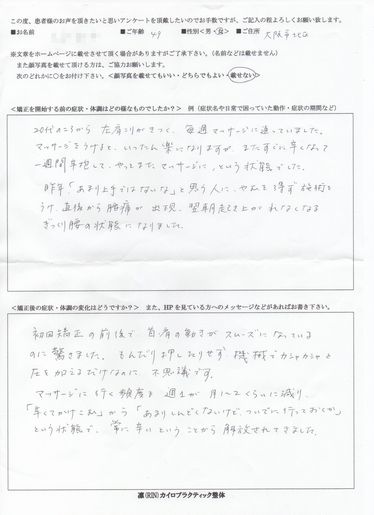 この度、患者様のお声を頂きたいと思いアンケートを頂戴したいのでお手数ですが、ご記入の程よろしくお願い致します。
■お名前 ■ご年齢 49 ■性別<男・女> ■ご住所 大阪市北区
※文章をホームページに載せさせて頂く場合がありますがご了承下さい。(名前などは載せません)
また顔写真を載せて頂ける方は、ご協力お願いします。
次のどれかに○をお付け下さい。<顔写真を載せてもいい・どちらでもよい・載せない>
<矯正を開始する前の症状・体調はどの様なものでしたか?> 例(症状名や日常で困っていた動作・症状の期間など)
20代のころから 左肩こりがきつく、毎週マッサージに通っていました。
マッサージをうけると、いったん楽になりますが、またすぐに辛くなって
一週間辛抱して、やっとまたマッサージに、という状態でした。
昨年「あまり上手ではないな」と思う人に、やむを得ず施術を
うけ、直後から腰痛が出現、翌朝起き上がれなくなる
ぎっくり腰の状態になりました。
<矯正後の症状・体調の変化はどうですか?> また、HPを見ている方へのメッセージなどがあればお書き下さい。
初回矯正の前後で 首肩の動きがスムーズになっている
のに驚きました。もんだり押したりせず 機械でカシャカシャと
圧を加えるだけなのに 不思議です。
マッサージに行く頻度も 週1が 月1〜2くらいに減り、
「辛くてかけこむ」から「あまりしんどくないけど、ついでに行っておくか」
という状態で、常に辛いということから解放されてきました。
凛(RIN)カイロプラクティック整体